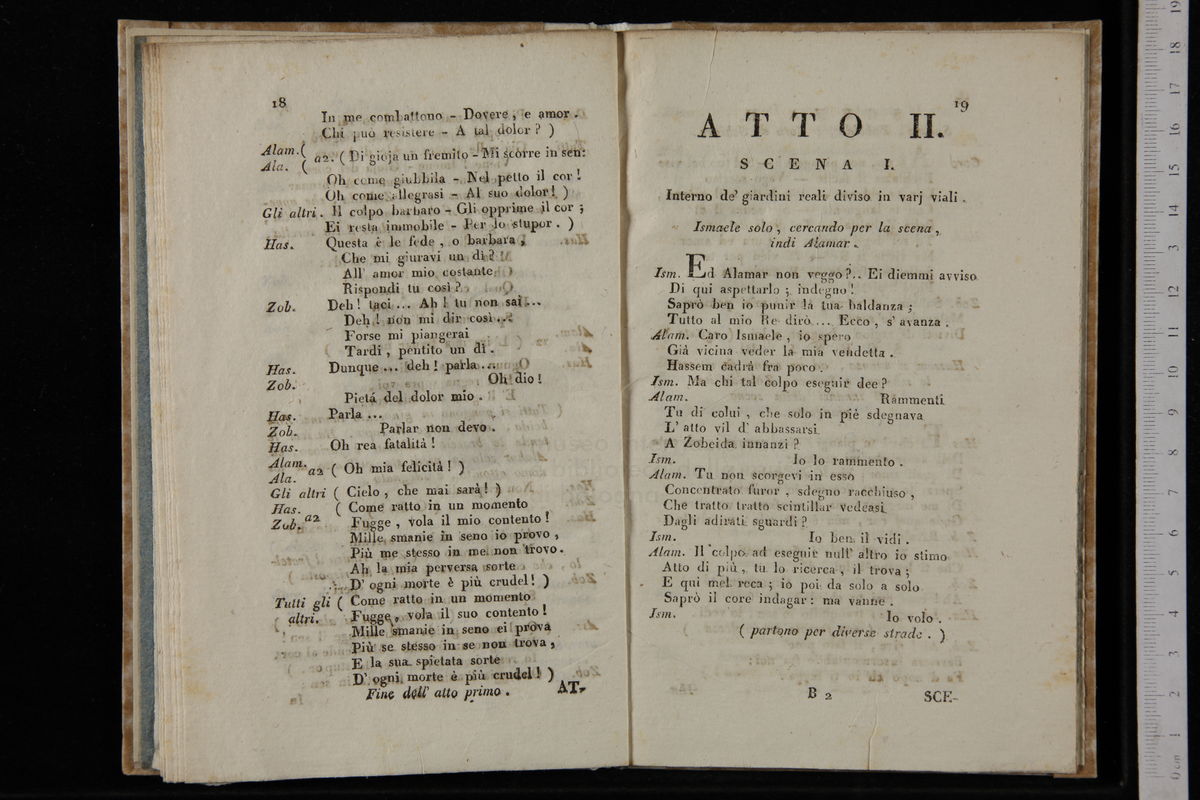 18
In me combattono - Dovere, e amor.
Chi può resistere - A tal dolor? )
Alam. ( a2. ( Di gioja un fremito - Mi scorre in sen:
Ala. (
Oh come giubbila - Nel petto il cor!
Oh come allegrasi - Al suo dolor! )
Gli altri. Il colpo barbaro - Gli opprime il cor;
Ei resta immobile - Per lo stupor. )
Has. Questa è le fede, o barbara,
Che mi giuravi un dì?
All' amor mio costante
Rispondi tu così?
Zob. Deh! taci ... Ah! tu non sai ...
Deh! non mi dir così ...
Forse mi piangerai
Tardi, pentito un dì.
Has. Dunque ... deh! parla ...
Zob. Oh dio!
Pietà del dolor mio.
Has. Parla ...
Zob. Parlar non devo.
Has. Oh rea fatalità!
Alam. a2 ( Oh mia felicità! )
Ala.
Gli altri ( Cielo, che mai sarà! )
Has. ( Come ratto in un momento
Zub. a2 Fugge, vola il mio contento!
Mille smanie in seno io provo,
Più me stesso in me non trovo.
Ah la mia perversa sorte
D' ogni morte è più crudel! )
Tutti gli ( Come ratto in un momento
altri. Fugge, vola il suo contento!
Mille smanie in seno ei prova
Più se stesso in se non trova,
E la sua spietata sorte
D' ogni morte è più crudel! )
Fine dell' atto primo. AT-
19
ATTO II.
SCENA I.
Interno de' giardini reali diviso in varj viali.
Ismaele solo, cercando per la scena,
indi Alamar.
Ism. Ed Alamar non veggo?.. Ei diemmi avviso
Di qui aspettarlo; indegno!
Saprò ben io punir la tua baldanza;
Tutto al mio Re dirò.... Ecco, s' avanza.
Alam. Caro Ismaele, io spero
Già vicina veder la mia vendetta.
Hassem cadrà fra poco.
Ism. Ma chi tal colpo eseguir dee?
Alam. Rammenti
Tu di colui, che solo in piè sdegnava
L' atto vil d' abbassarsi
A Zobeida innanzi?
Ism. Io lo rammento.
Alam. Tu non scorgevi in esso
Concentrato furor, sdegno racchiuso,
Che tratto tratto scintillar vedeasi
Dagli adirati sguardi?
Ism. Io ben il vidi.
Alam. Il colpo ad eseguir null' altro io stimo
Atto di più, tu lo ricerca, il trova;
E qui mel reca; io poi da solo a solo
Saprò il core indagar: ma vanne.
Ism. Io volo.
( partono per diverse strade. )
B 2 SCE-